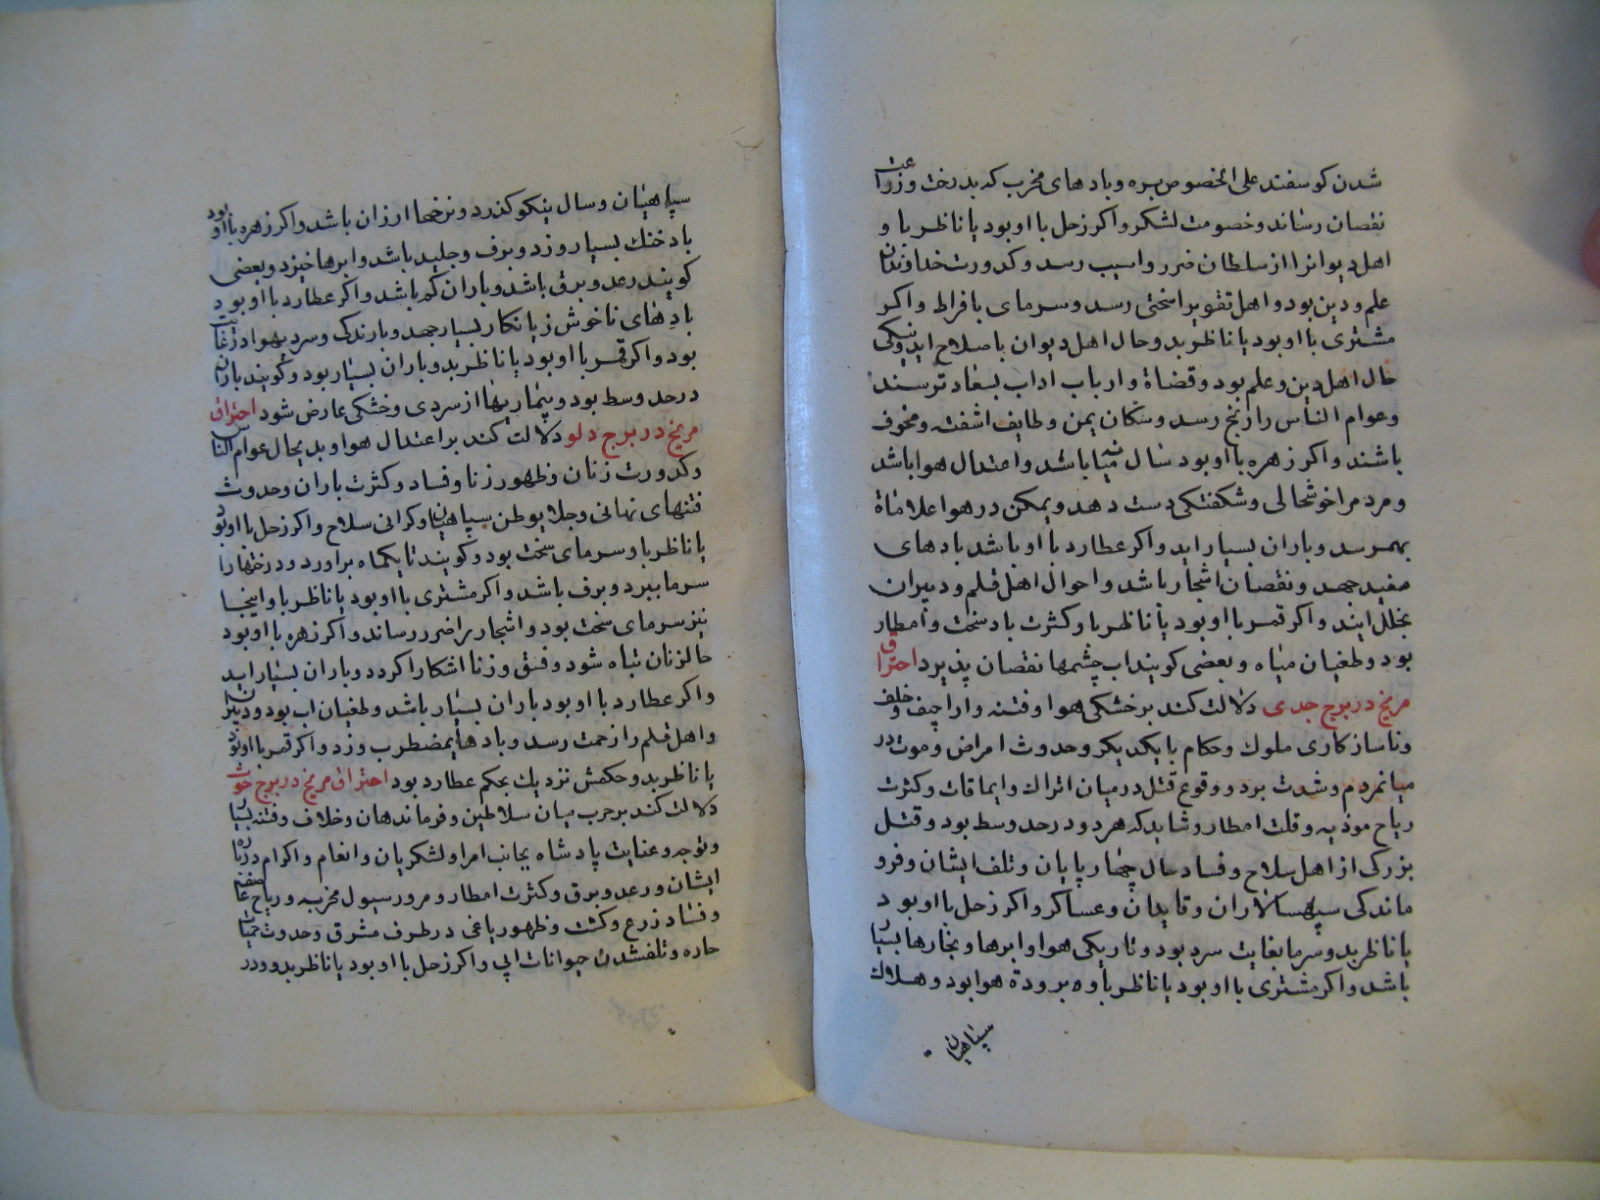 شدن کوسفند علی الخصوص بره و بادهای مخرب که بدرخت وزراعت
نقصان رساند وخصومت لشکر واکر زحل با او بود یا ناظر با و
اهل دیوانرا از سلطان ضرر واسیب رسد وکدورت خداوندان
علم و دین بود و اهل تقویرا سختی رسد وسرمای بافراط واکر
مشتری با او بود یا ناظر بد وحال اهل دیوان باصلاح اید ونیکی
حال اهل دین وعلم بود وقضاة و ارباب اداب بسعادت رسند
وعوام الناس را رنج رسد وسکان یمن وطایف اشفته ومخوف
باشند واکر زهره با او بود سال میانه باشد واعتدال هوا باشد
ومردمرا خوشحالی وشکفتکی دست دهد ویمکن در هوا علاماة
بهمرسد وباران بسیار اید واکر عطارد با او باشد بادهای
مفید جهد ونقصان اشجار باشد واحوال اهل قلم و دبیران
بخلل ایند واکر قمر با او بود یا ناظر با و کثرت باد سخت وامطار
بود وطغیان میاه وبعضی کویند اب چشمها نقصان پذیرد احتراق
مریخ در برج جدی دلالت کند بر خشکی هوا وفتنه واراجیف وخلف
وناسازکاری ملوک وحکام با یکدیکر وحدوث امراض وموت در
میانمردم وشدت برد ووقوع قتل در میان اتراک وایماقات وکثرت
ریاح موذیه وقلت امطار وشاید که هر دو در حد وسط بود وقتل
بزرکی از اهل سلاح وفساد حال چهارپایان وتلف ایشان وفرو
ماندکی سپهسالاران وقایدان وعساکر واکر زحل با او بود
یا ناظر بد وسرما بغایت سرد بود وتاریکی هوا وابرها وبخارها بسیار
باشد واکر مشتری با او بود یا ناظر باو ه برودة هوا بود وهلاک
سپاهیان
سپاهیان وسال نیکو کذرد ونرخها ارزان باشد واکر زهره با او بود
باد خنک بسیار وزد وبرف وجلید باشد وابرها خیزد وبعضی
کویند رعد وبرق باشد وباران کم باشد واکر عطارد با او بود
بادهای ناخوش زیانکار بسیار جهد وبارندکی وسردی هوا در غایت
بود واکر قمر با او بود یا ناظر بد وباران بسیار بود وکویند باران
در حد وسط بود وبیماریها از سردی وخشکی عارض شود احتراق
مریخ در برج دلو دلالت کند بر اعتدال هوا وبدیحال عوام الناس
وکدورت زنان وظهور زنا وفساد وکثرت باران وحدوث
فتنهای نهانی وجلایوطن سپاهیان وکرانی سلاح واکر زحل با او بود
یا ناظر با و سرمای سخت بود وکویند تا یکماه براورد ودرختهارا
سرما ببرد وبرف باشد واکر مشتری با او بود یا ناظر با و اینجا
نیز سرمای سخت بود واشجار را ضرر رساند واکر زهره با او بود
حالزنان تباه شود وفسق وزنا اشکارا کردد وباران بسیار اید
واکر عطارد با او بود باران بسیار باشد وطغیان اب بود ودبیران
واهل قلم را زحمت رسد وبادهایمضطرب وزد واکر قمر با او بود
یا ناظر بد وحکمش نزدیک بحکم عطارد بود احتراق مریخ در برج حوت
دلالت کند بر حرب میان سلاطین وفرماندهان وخلاف وفتنه بسیار
وتوجه وعنایت پادشاه بجانب امرا ولشکریان وانعام واکرام درباره
ایشان ورعد وبرق وکثرت امطار ومرور سیول مخربه وریاح عاصفه
وفساد زرع وکشت وظهور یاغی در طرف مشرق وحدوث حمیات
حاره وتلفشدن حیوانات ابی واکر زحل با او بود یا ناظر بد و ودر